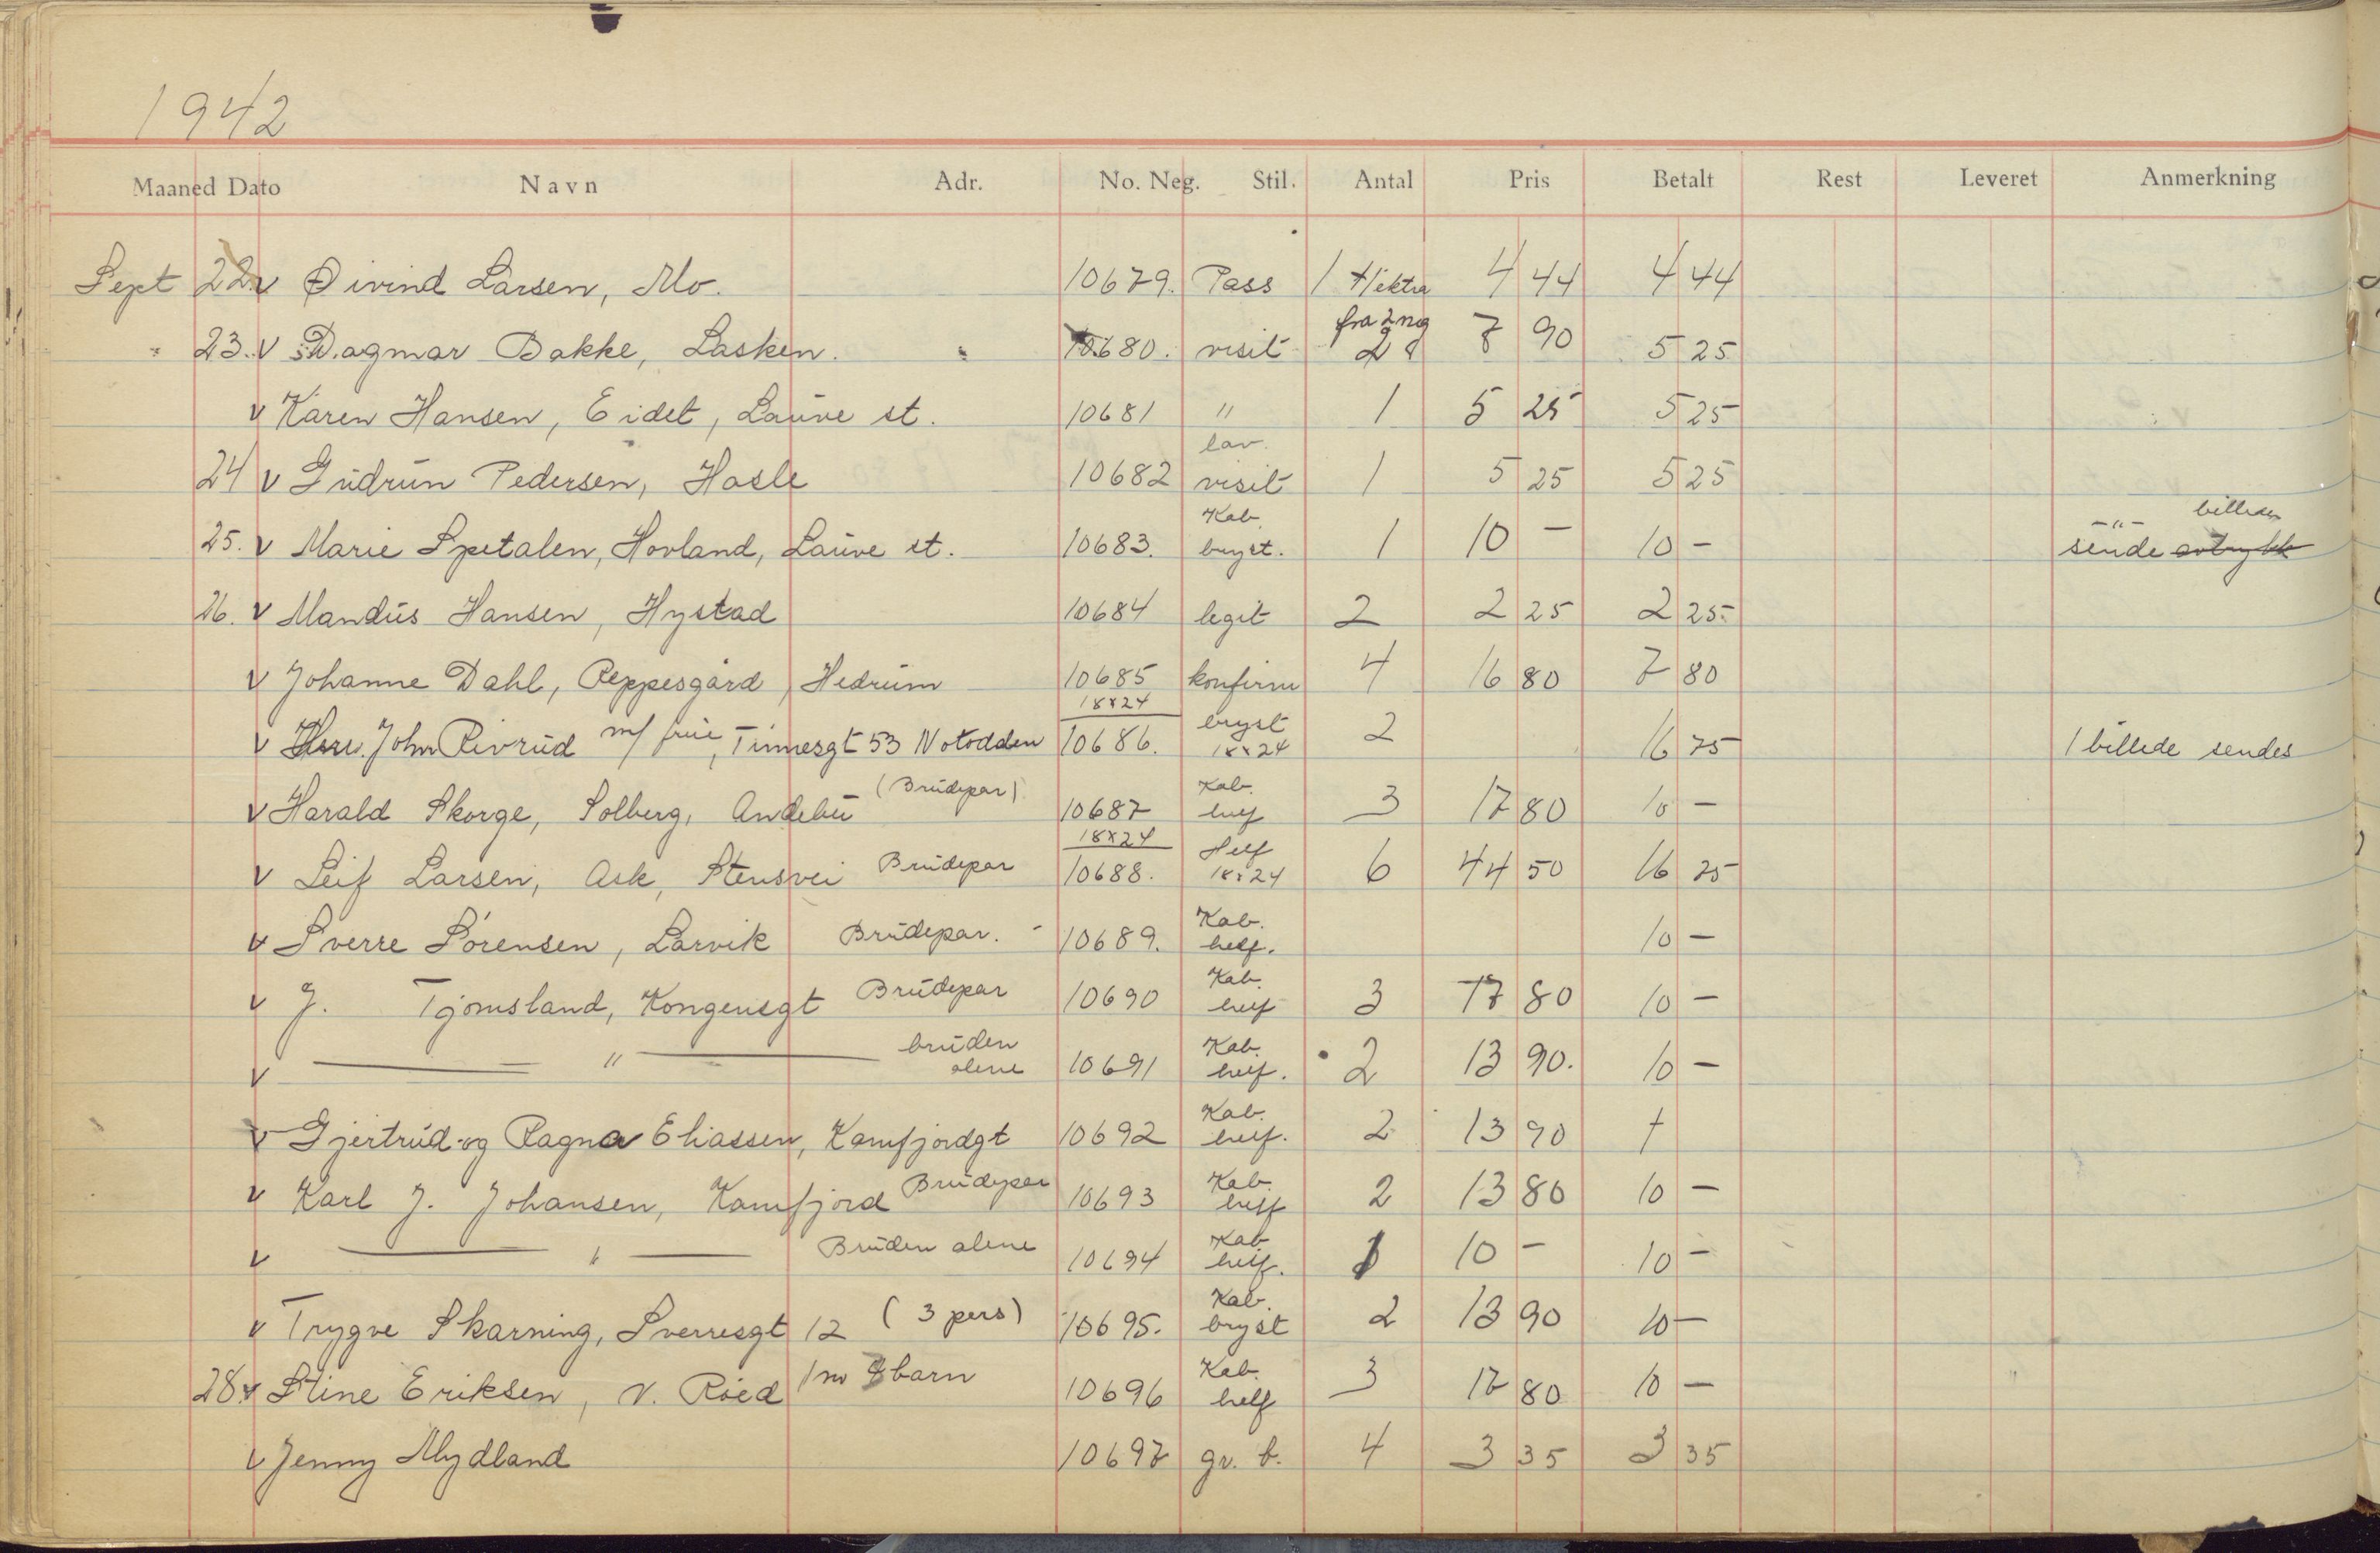 1942
Maaned Dato Navn Adr. No. Neg. Stil. Antal Pris Betalt Rest Leveret Anmerkning
Sept 22. v Øivind Larsen, Mo. 10679. Pass 1 + 1 ektra 4 44 4 44
" 23. v Dagmar Bakke, Lasken. 10680. visit fra 2 neg 2 7 90 5 25
v Karen Hansen, Eidet, Lauve st. 10681 " 1 5 25 5 25
24 v Gudrun Pedersen, Hasle 10682 lav. visit 1 5 25 5 25
25. v Marie Spetalen, Hovland, Lauve st. 10683. Kab. bryst. 1 10 – 10 – –"– billeder sende avtrykk
26. v Mandus Hansen, Hystad 10684 legit 2 2 25 2 25
v Johanne Dahl, Reppesgård, Hedrum 10685 konfirm 4 16 80 7 80
v John Rivrud m/ frue, Tinnesgt 53 Notodden 18x24 10686. bryst 18x24 2 16 75 1 billede sendes
v Harald Skorge, Solberg, Andebu (Brudepar) 10687 Kab. helf 3 17 80 10 –
v Leif Larsen, Ask, Stensvei Brudepar 18x24 10688. Helf 18x24 6 44 50 16 75
v Sverre Sørensen, Larvik Brudepar. 10689. Kab. helf. 10 –
v J. Tjomsland, Kongensgt Brudepar 10690 Kab. helf 3 17 80 10 –
v — " — bruden alene 10691 Kab. helf. 2 13 90. 10 –
v Gjertrud og Ragna Eliassen, Kamfjordgt 10692 Kab. helf. 2 13 90 +
v Karl J. Johansen, Kamfjord Brudepar 10693 Kab. helf 2 13 80 10 –
v — " — Bruden alene 10694 Kab helf. 1 10 – 10 –
v Trygve Skarning, Sverresgt 12 (3 pers) 10695. Kab. bryst 2 13 90 10 –
28. v Stine Eriksen, N. Røed barn 10696 Kab. helf 3 17 80 10 –
v Jenny Mydland 10697 gr. b. 4 3 35 3 35